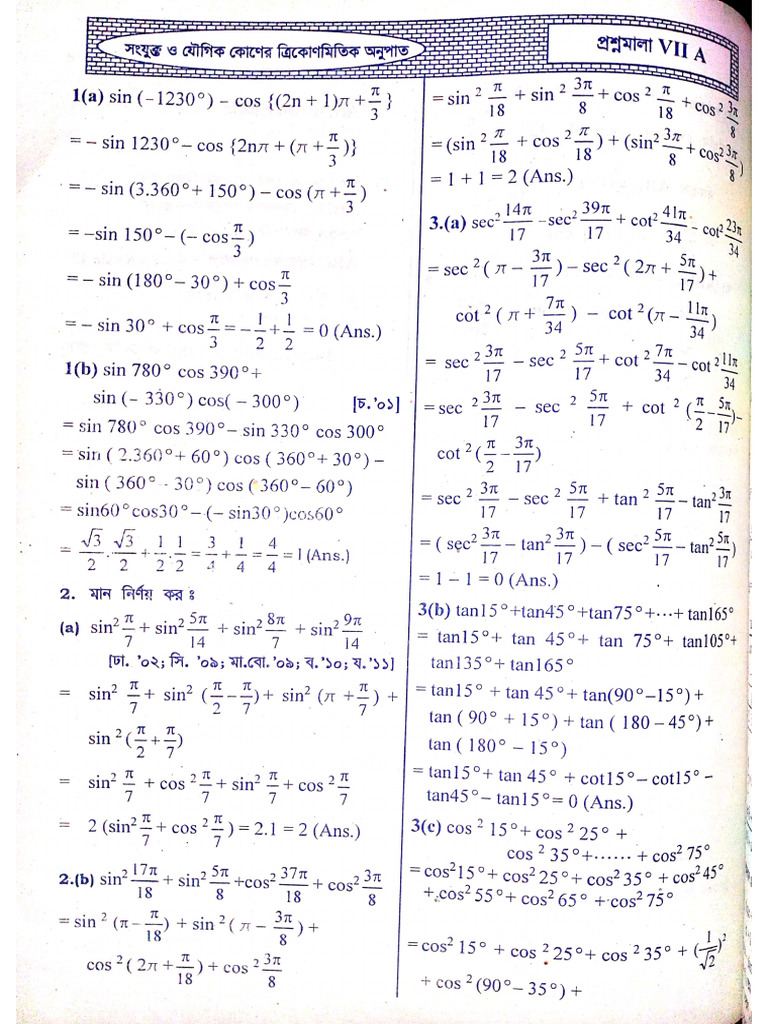 সংযুক্ত ও যৌগিক কোণের ত্রিকোণমিতিক অনুপাত
প্রশ্নমালা VII A
1(a) sin (−1230°) − cos {(2n + 1)π + π/3 }
= − sin 1230° − cos {2nπ + (π + π/3)}
= − sin (3.360° + 150°) − cos (π + π/3)
= −sin 150° − (− cos π/3)
= − sin (180° − 30°) + cos π/3
= − sin 30° + cos π/3 = − 1/2 + 1/2 = 0 (Ans.)
1(b) sin 780° cos 390° +
sin (− 330°) cos( − 300°) [চ.'০১]
= sin 780° cos 390° − sin 330° cos 300°
= sin ( 2.360° + 60°) cos ( 360° + 30°) −
sin ( 360° - 30°) cos ( 360° − 60°)
= sin60° cos30° − (− sin30°)cos60°
= √3/2 . √3/2 + 1/2 . 1/2 = 3/4 + 1/4 = 4/4 = 1 (Ans.)
2. মান নির্ণয় কর ঃ
(a) sin² π/7 + sin² 5π/14 + sin² 8π/7 + sin² 9π/14
[ঢা. '০২; সি. '০৯; মা.বো. '০৯; ব.'১০; য.'১১]
= sin² π/7 + sin² (π/2 − π/7) + sin² (π + π/7) +
sin² (π/2 + π/7)
= sin² π/7 + cos² π/7 + sin² π/7 + cos² π/7
= 2 (sin² π/7 + cos² π/7) = 2.1 = 2 (Ans.)
2.(b) sin² 17π/18 + sin² 5π/8 + cos² 37π/18 + cos² 3π/8
= sin² (π − π/18) + sin² ( π − 3π/8) +
cos² ( 2π + π/18) + cos² 3π/8
= sin² π/18 + sin² 3π/8 + cos² π/18 + cos² 3π/8
= (sin² π/18 + cos² π/18) + (sin² 3π/8 + cos² 3π/8)
= 1 + 1 = 2 (Ans.)
3.(a) sec² 14π/17 − sec² 39π/17 + cot² 41π/34 − cot² 23π/34
= sec² ( π − 3π/17) − sec² ( 2π + 5π/17) +
cot² ( π + 7π/34) − cot² (π − 11π/34)
= sec² 3π/17 − sec² 5π/17 + cot² 7π/34 − cot² 11π/34
= sec² 3π/17 − sec² 5π/17 + cot² (π/2 − 5π/17) −
cot² (π/2 − 3π/17)
= sec² 3π/17 − sec² 5π/17 + tan² 5π/17 − tan² 3π/17
= ( sec² 3π/17 − tan² 3π/17) − ( sec² 5π/17 − tan² 5π/17)
= 1 − 1 = 0 (Ans.)
3(b) tan15° + tan45° + tan75° + ··· + tan165°
= tan15° + tan 45° + tan 75° + tan105° +
tan135° + tan165°
= tan15° + tan 45° + tan(90° − 15°) +
tan ( 90° + 15°) + tan ( 180 − 45°) +
tan ( 180° − 15°)
= tan15° + tan 45° + cot15° − cot15° −
tan45° − tan15° = 0 (Ans.)
3(c) cos² 15° + cos² 25° +
cos² 35° + ······ + cos² 75°
= cos² 15° + cos² 25° + cos² 35° + cos² 45°
+ cos² 55° + cos² 65° + cos² 75°
= cos² 15° + cos² 25° + cos² 35° + (1/√2)²
+ cos² (90° − 35°) +